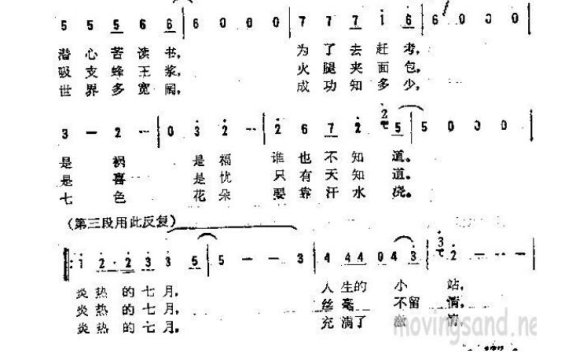 5 5 5 6 6 | 5 0 0 0 | 7 7 7 i 6 | 5 0 0 0 |
潜心苦读书, 为了去赶考,
吸支蜂王浆, 火腿夹面包,
世界多宽阔, 成功知多少,
3 - 2 - | 0 3 2 - | 2 6 7 2 5 | 5 0 0 0 |
是祸 是福 谁也不知道。
是喜 是忧 只有天知道。
七色 花朵 要靠汗水浇。
(第三段用此反复)
炎热的七月, 人生的小站,
炎热的七月, 丝毫不留情,
炎热的七月, 充满了
movingsand.ne